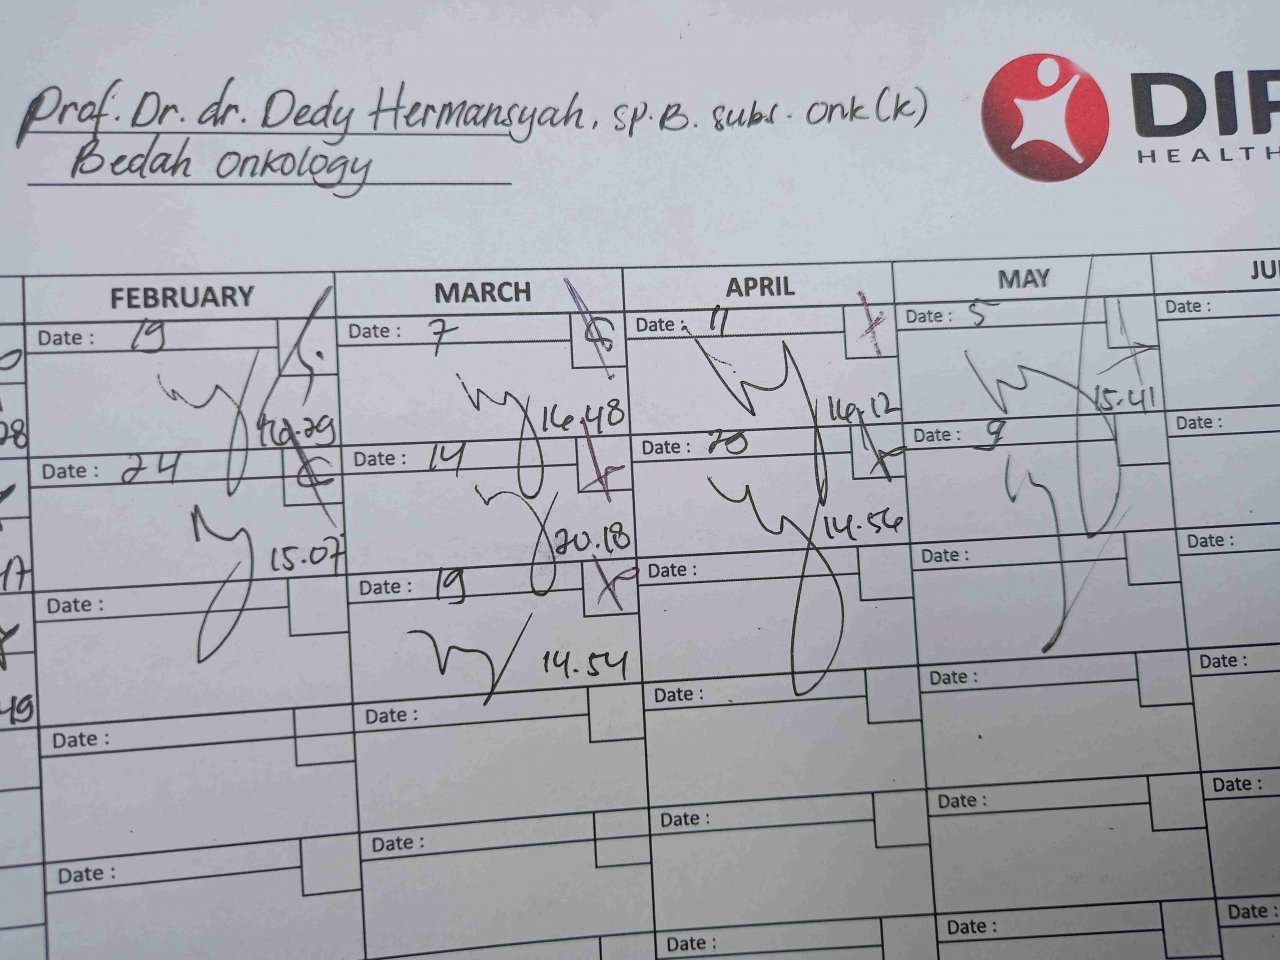 Prof. Dr. dr. Dedy Hermansyah, Sp.B. subs. onk (k)
Bedah onkology
DIP
HEALTH
FEBRUARY MARCH APRIL MAY
Date : 19 Date : 7 Date : 11 Date : 5 Date :
16.48 16.12 15.41
28
Date : 24 Date : 14 Date : 20 Date : 9 Date :
15.07 20.18 14.56
17
Date : Date : 19 Date : Date : Date :
14.54
49
Date : Date : Date : Date : Date :
Date : Date : Date : Date : Date :
Date : Date : Date :